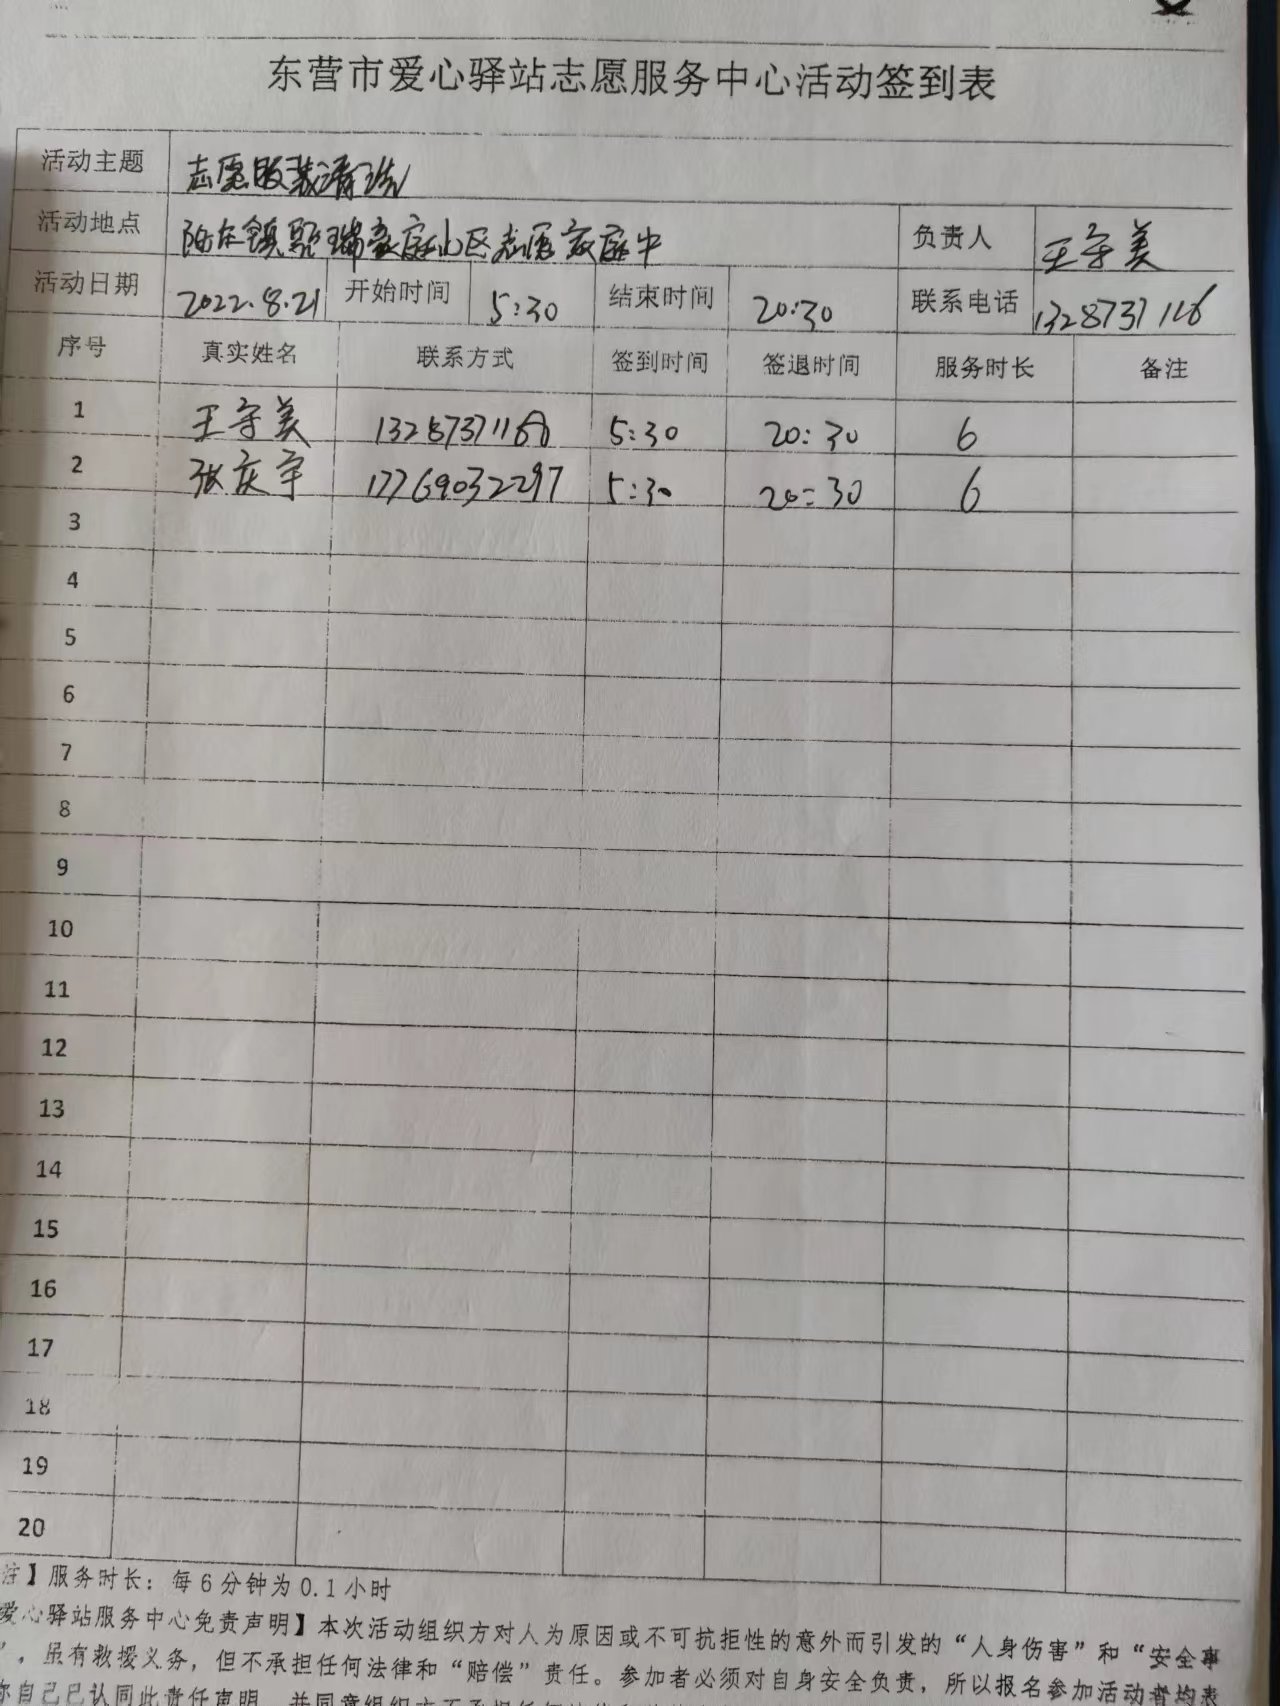 东营市爱心驿站志愿服务中心活动签到表
活动主题 志愿服装清洗
活动地点 瑞豪庭小区志愿家庭中 负责人 王守美
活动日期 2022.8.21 开始时间 5:30 结束时间 20:30 联系电话
序号 真实姓名 联系方式 签到时间 签退时间 服务时长 备注
1 王守美 5:30 20:30 6
2 张庆宇 17769032297 5:30 20:30 6
3
4
5
6
7
8
9
10
11
12
13
14
15
16
17
18
19
20
注】服务时长：每6分钟为0.1小时
爱心驿站服务中心免责声明】本次活动组织方对人为原因或不可抗拒性的意外而引发的“人身伤害”和“安全事
”，虽有救援义务，但不承担任何法律和“赔偿”责任。参加者必须对自身安全负责，所以报名参加活动者均表
你自己已认同此责任声明